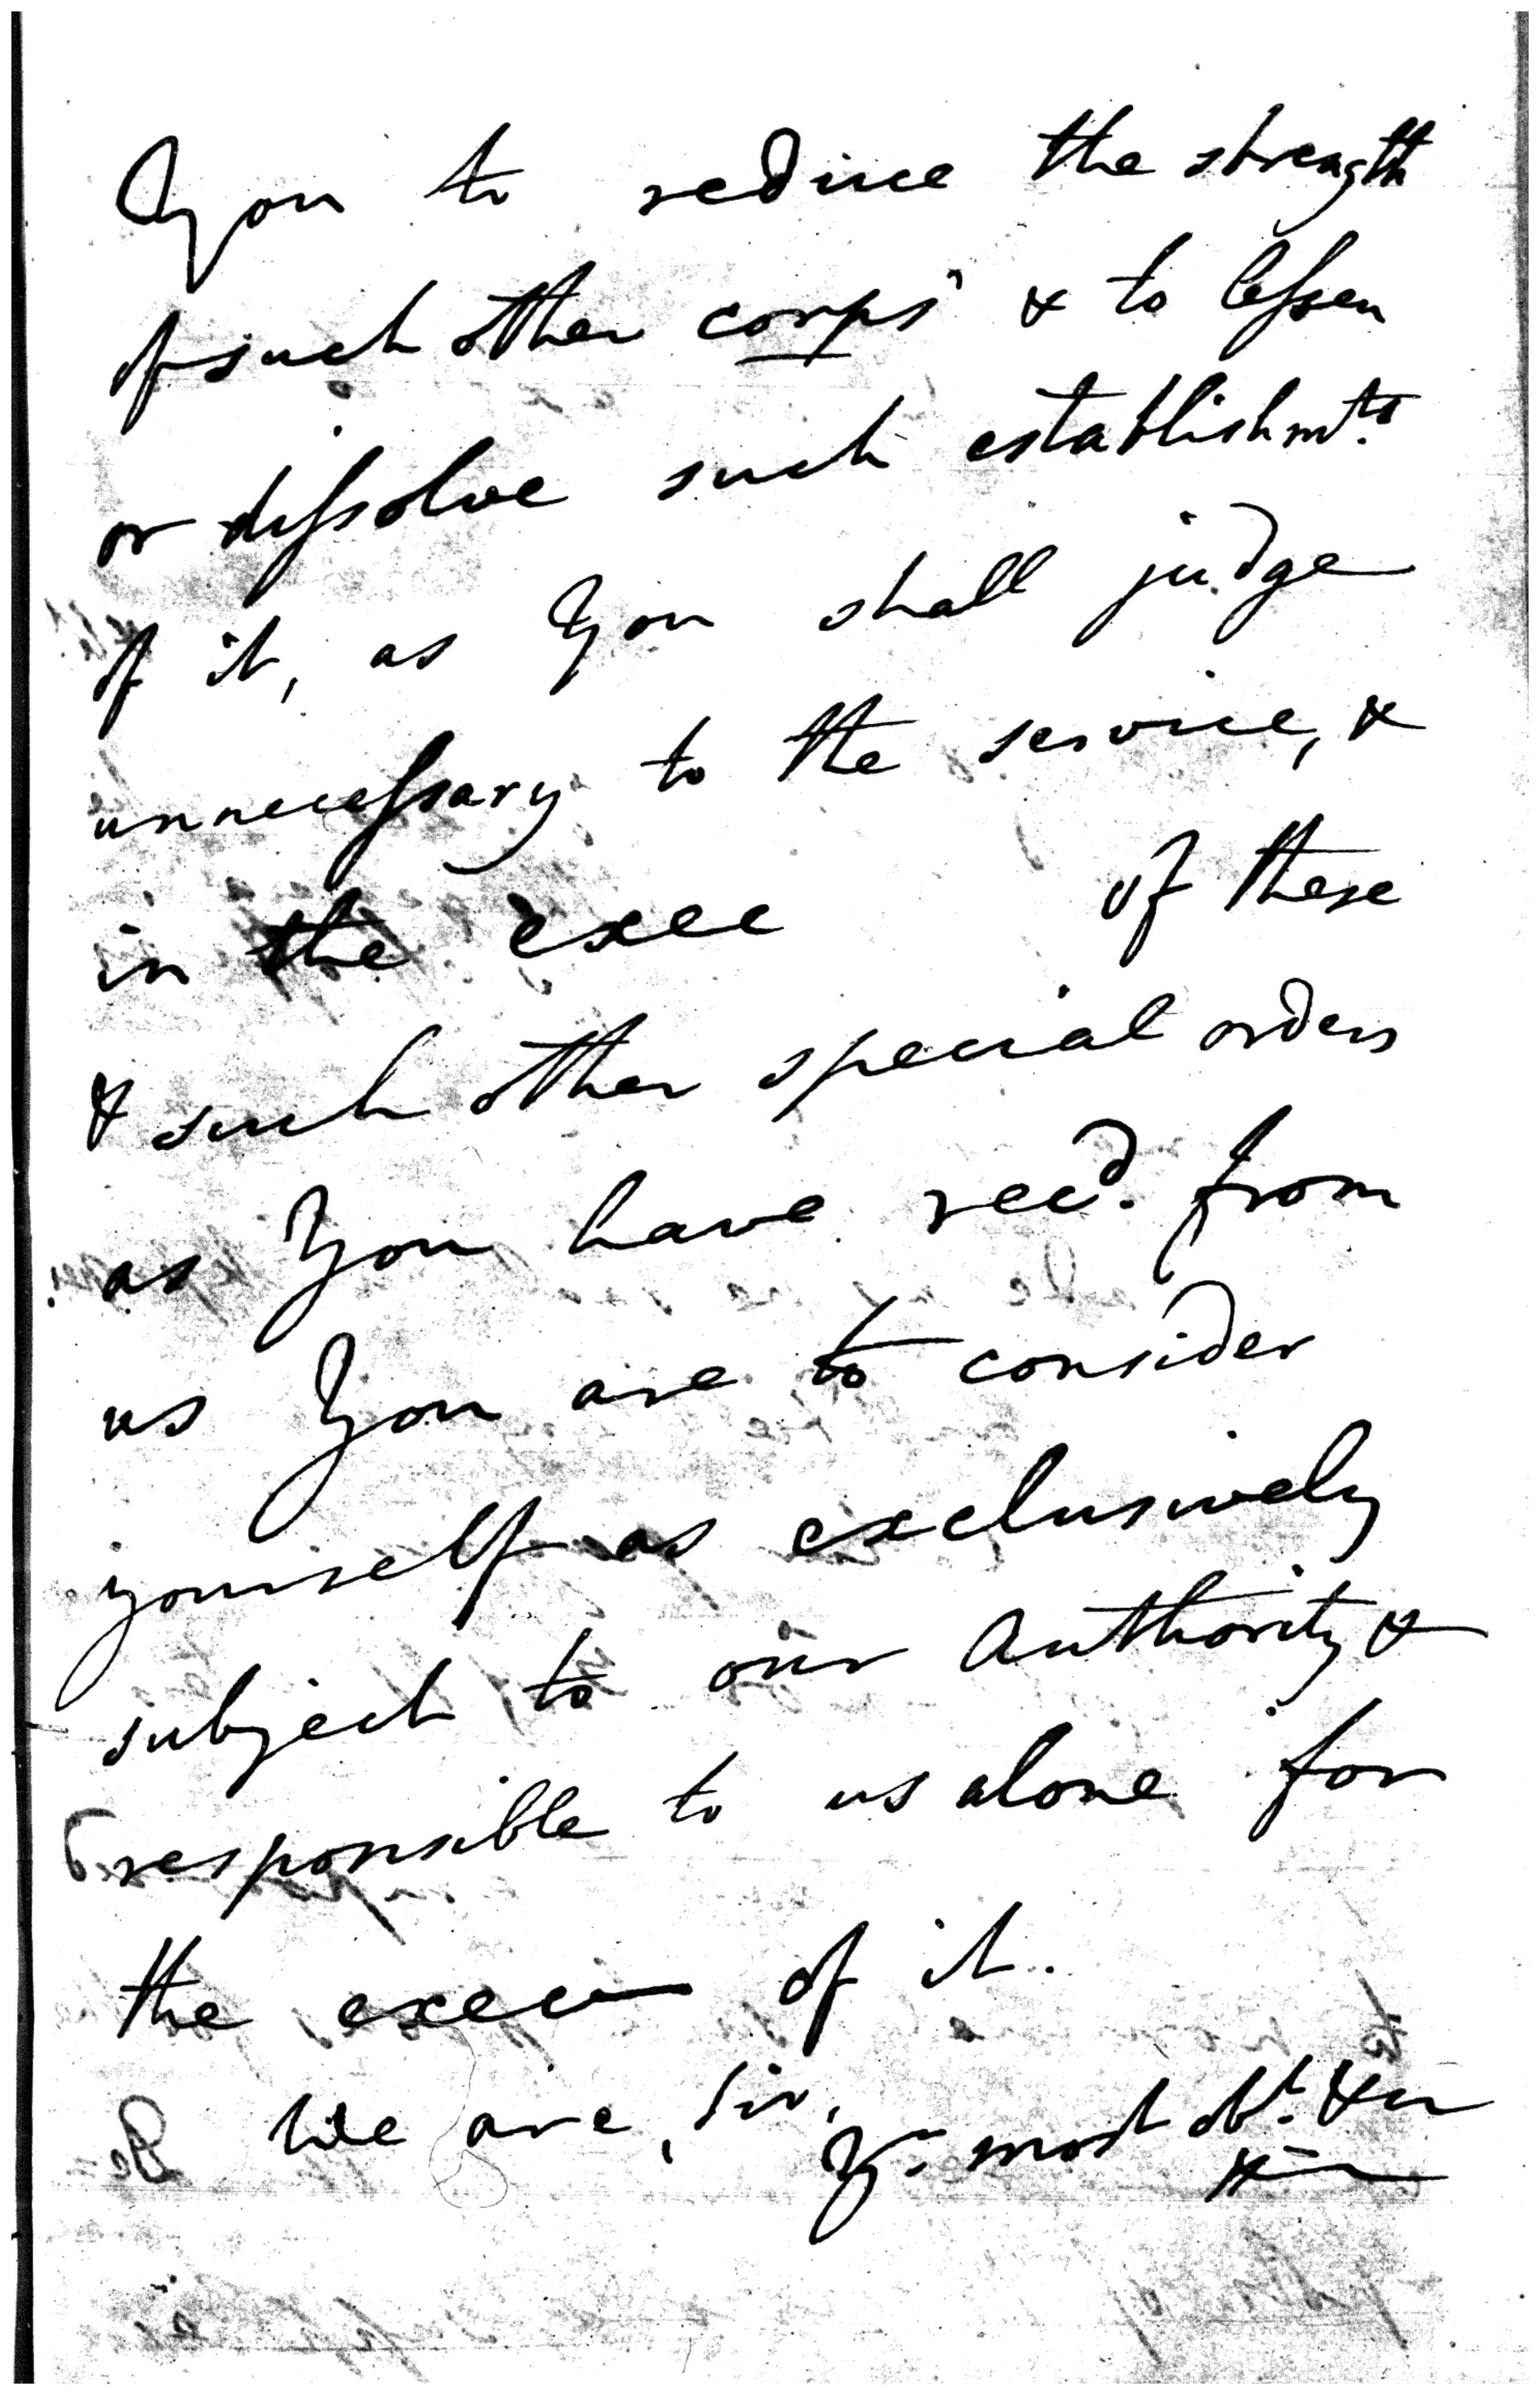 You to reduce the strength
of such other corps & to lessen
or dissolve such establishmts.
of it, as You shall judge
unnecessary to the service, &
in the exec of these
& such other special orders
as You have recd. from
us You are to consider
yourself as exclusively
subject to our authority &
responsible to us alone for
the execu of it.
We are, Sir,
Yr. most obt. &c
&c